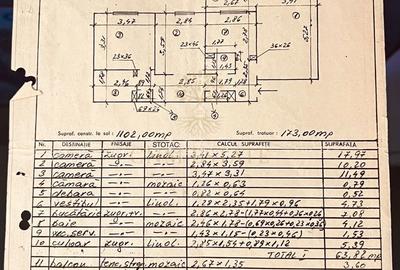 3,47 2,84 2,86 3,41
3,31 3,59 2,78 5,27
23×26 23×46 36×26
1,43
2,46 2,85 1,79
69×26
Supraf. constr. la sol: 1102,00mp Supraf. trotuar: 173,00mp
Nr. DESTINAȚIE FINISAJE STOTAC: CALCUL SUPRAFEȚE SUPRAFAȚA
1 cameră zugr. linol. 3,41 × 5,27 17,97
2 cameră -"- -"- 2,84 × 3,59 10,20
3 cameră -"- -"- 3,47 × 3,31 11,49
4 cămara -"- mozaic 1,26 × 0,63 0,79
5 debara -"- -"- 0,82 × 0,64 0,52
6 vestibul -"- Linol. 1,28×2,35+1,79×0,96 4,73
7 bucătărie zugr. -"- 2,86×2,78-(1,77×0,44+0,36×0,26) 7,08
8 baie -"- mozaic 2,46×1,78-(0,69×0,26+0,23×0,46) 4,12
9 -"- -"- 1,43×1,15-(0,23×0,46) 1,53
10 culoar zugr. Linol. 2,85×1,54+0,79×1,12 5,39
TOTAL I 63,82 mp
11 balcon mozaic 2,67×1,35 3,60